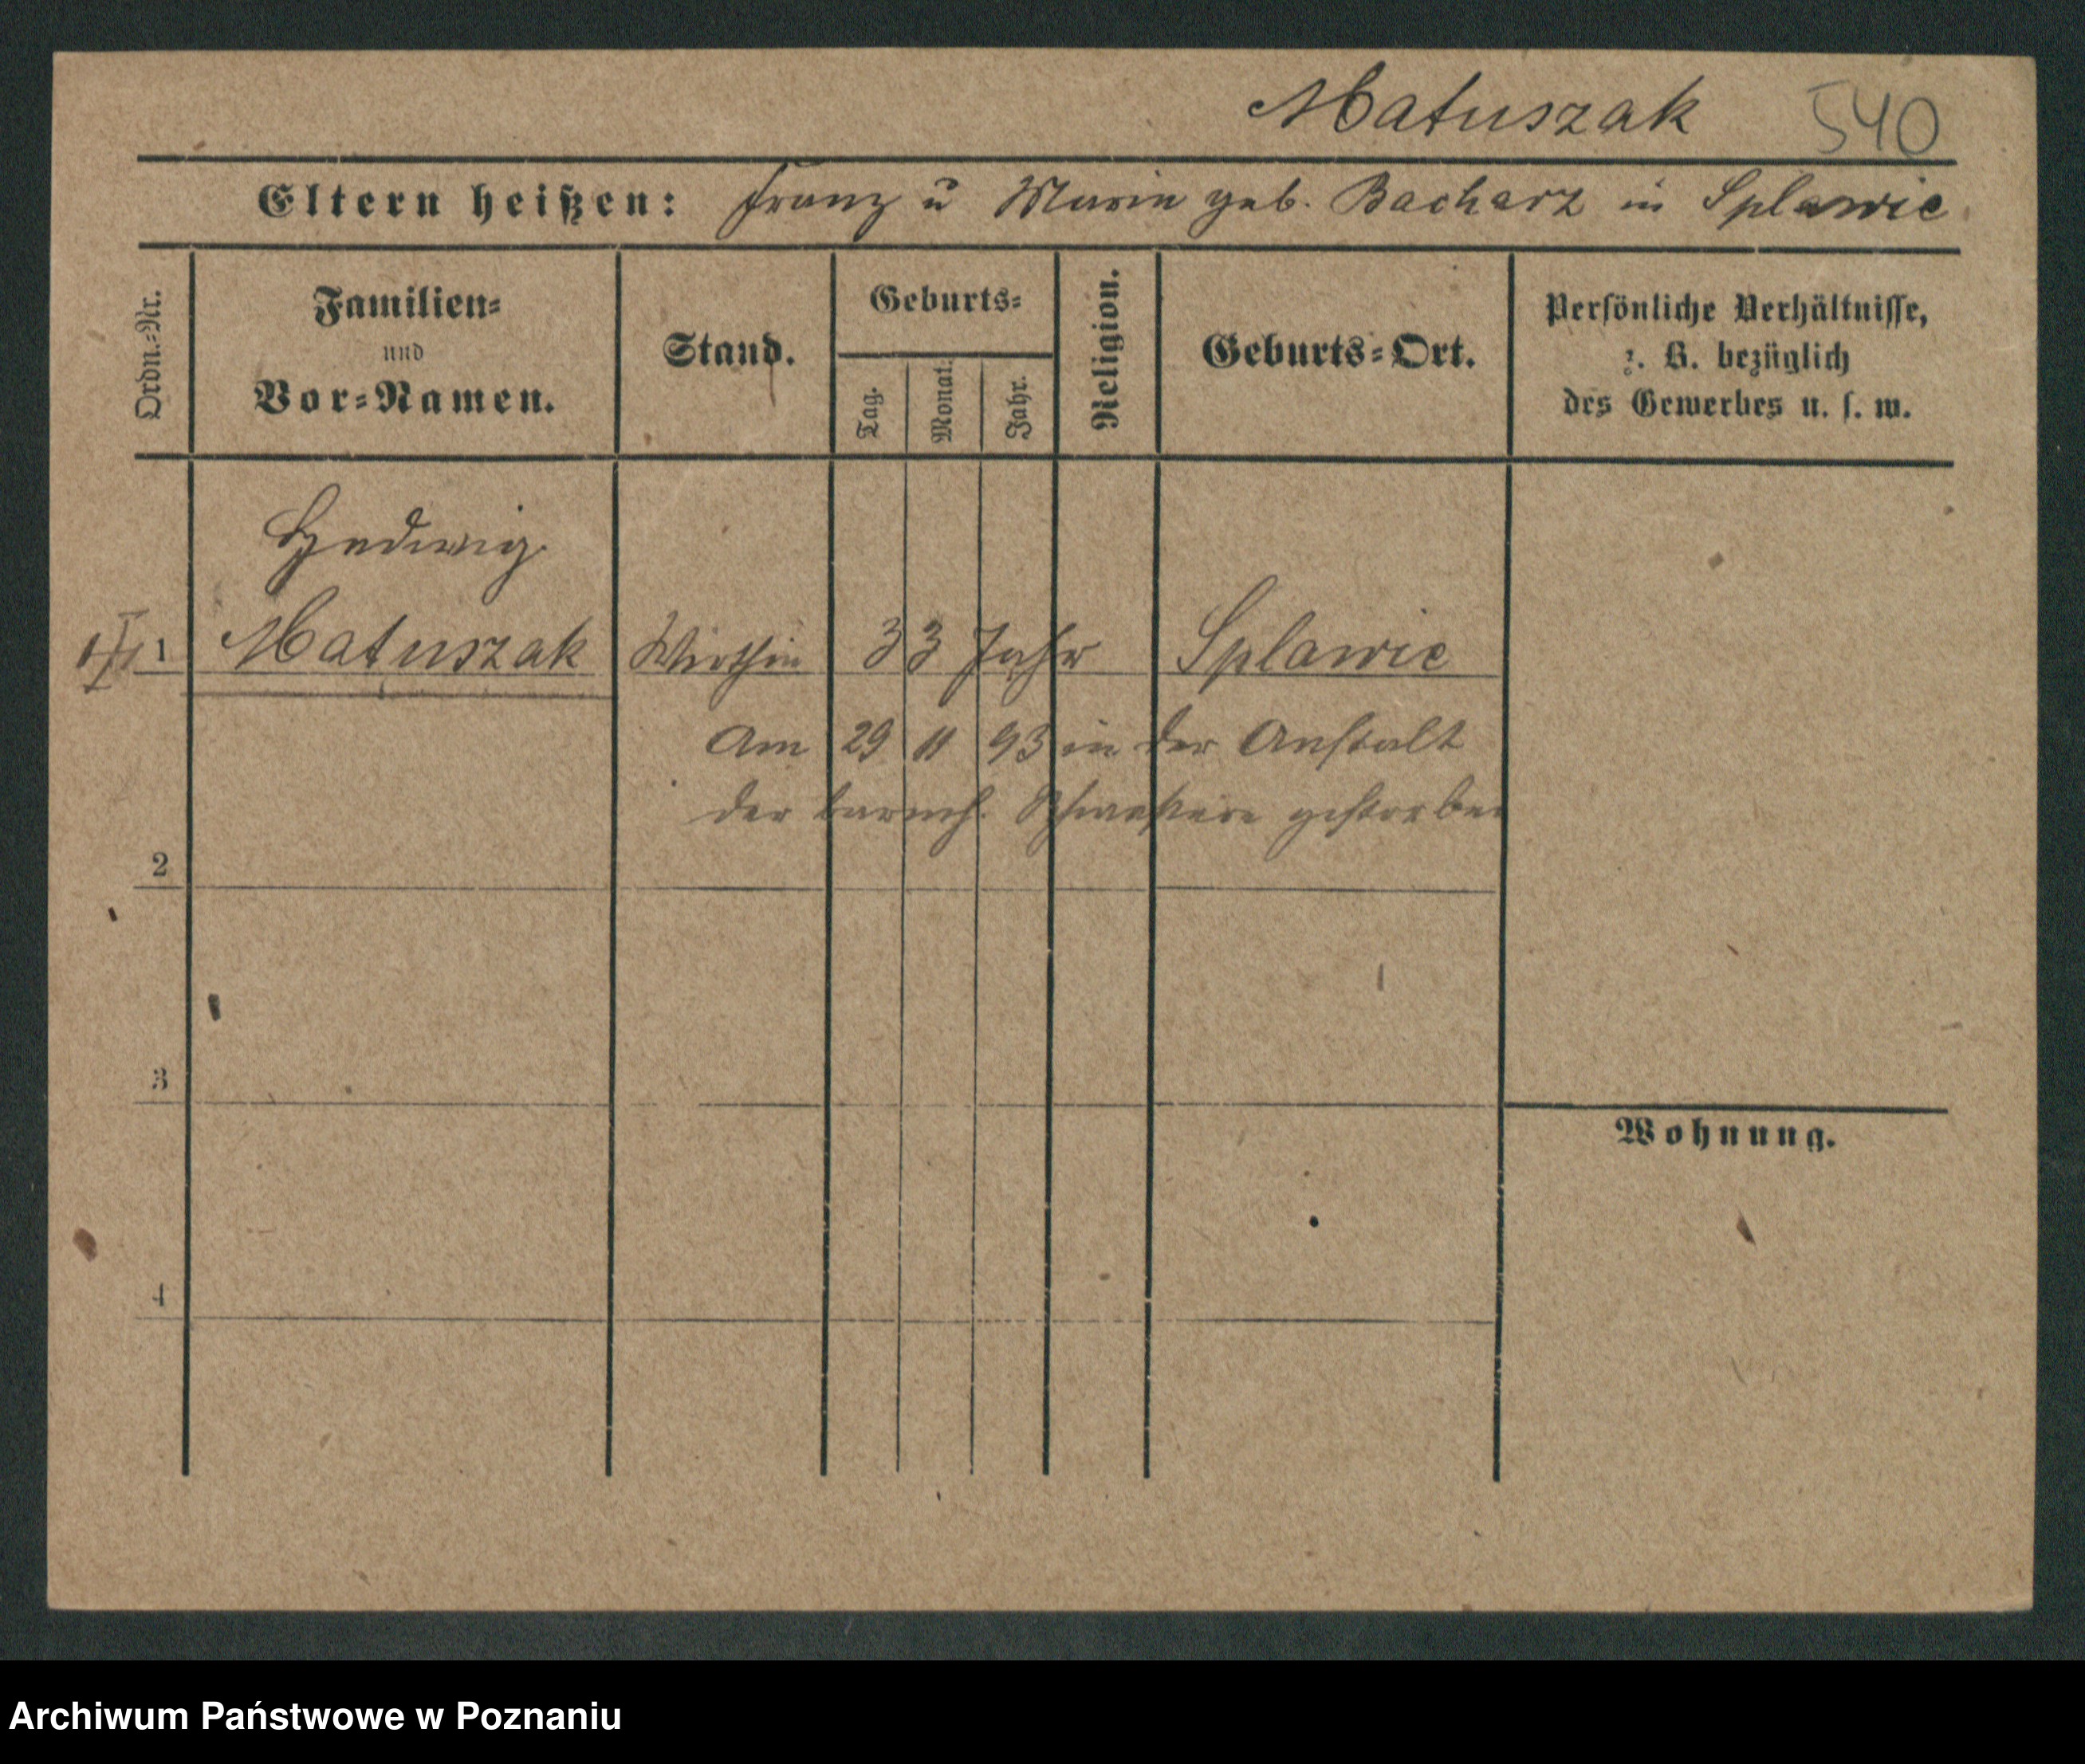 Matuszak 540
Eltern heißen: Franz u Marie geb. Bacharz in Splawie
Ordn.-Nr.
Familien-
und
Vor-Namen.
Stand.
Geburts-
Tag.
Monat.
Jahr.
Religion.
Geburts-Ort.
Persönliche Verhältnisse,
z. B. bezüglich
des Gewerbes u. s. w.
Hedwig
1 Matuszak Wirthin 33 Jahr Splawie
Am 29 11 93 in der Anstalt
der barmh. Schwestern gestorben
2
3
Wohnung.
4
Archiwum Państwowe w Poznaniu